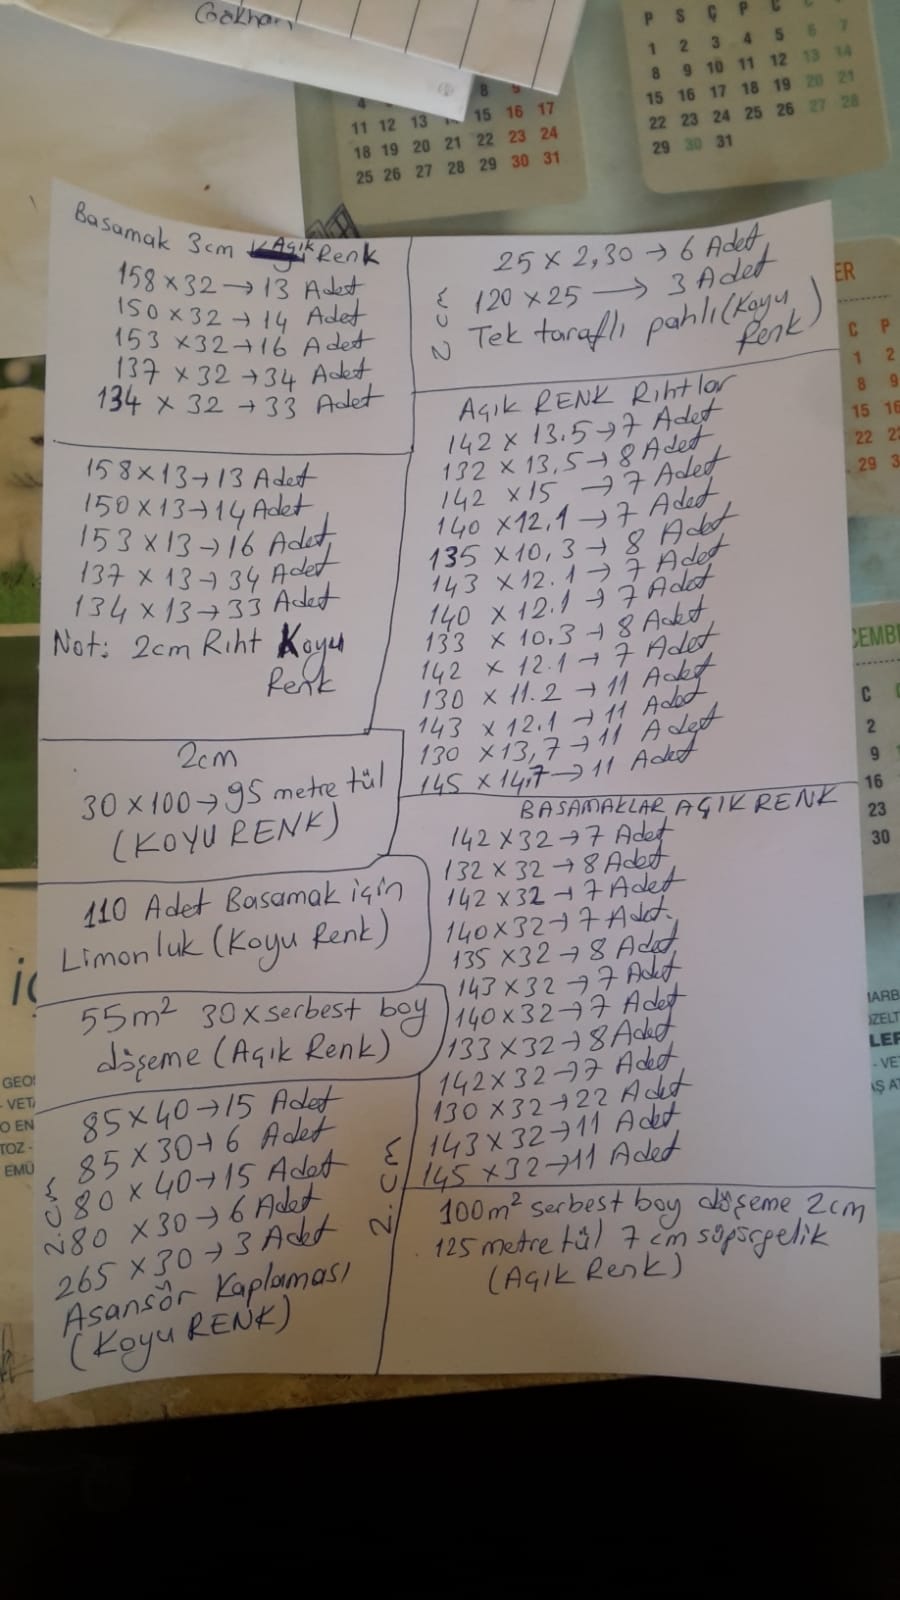 Gökhan
P S Ç P C
1 2 3 4 5 6 7
8 9 10 11 12 13 14
15 16 17 18 19 20 21
22 23 24 25 26 27 28
29 30 31
8 9
11 12 13 14 15 16 17
18 19 20 21 22 23 24
25 26 27 28 29 30 31
Basamak 3cm Açık Renk
158 x 32 → 13 Adet
150 x 32 → 14 Adet
153 x 32 → 16 Adet
137 x 32 → 34 Adet
134 x 32 → 33 Adet
158 x 13 → 13 Adet
150 x 13 → 14 Adet
153 x 13 → 16 Adet
137 x 13 → 34 Adet
134 x 13 → 33 Adet
Not: 2cm Rıht Koyu
Renk
2cm
30 x 100 → 95 metre tül
(KOYU RENK)
110 Adet Basamak için
Limonluk (Koyu Renk)
55m² 30 x serbest boy
döşeme (Açık Renk)
2.cm
85 x 40 → 15 Adet
85 x 30 → 6 Adet
80 x 40 → 15 Adet
80 x 30 → 6 Adet
265 x 30 → 3 Adet
Asansör Kaplaması
(Koyu RENK)
25 x 2,30 → 6 Adet
2 cm 120 x 25 → 3 Adet
Tek taraflı pahlı (Koyu
Renk)
Açık RENK Rıhtlar
142 x 13.5 → 7 Adet
132 x 13,5 → 8 Adet
142 x 15 → 7 Adet
140 x 12.1 → 7 Adet
135 x 10,3 → 8 Adet
143 x 12.1 → 7 Adet
140 x 12.1 → 7 Adet
133 x 10.3 → 8 Adet
142 x 12.1 → 7 Adet
130 x 11.2 → 11 Adet
143 x 12.1 → 11 Adet
130 x 13,7 → 11 Adet
145 x 14,7 → 11 Adet
BASAMAKLAR AÇIK RENK
142 x 32 → 7 Adet
132 x 32 → 8 Adet
142 x 32 → 7 Adet
140 x 32 → 7 Adet.
135 x 32 → 8 Adet
143 x 32 → 7 Adet
140 x 32 → 7 Adet
133 x 32 → 8 Adet
142 x 32 → 7 Adet
130 x 32 → 22 Adet
143 x 32 → 11 Adet
145 x 32 → 11 Adet
2.cm
100m² serbest boy döşeme 2cm
125 metre tül 7 cm süpürgelik
(Açık Renk)
ER
C P
1 2
8 9
15 16
22
29
CEMBE
C
2
9
16
23
30